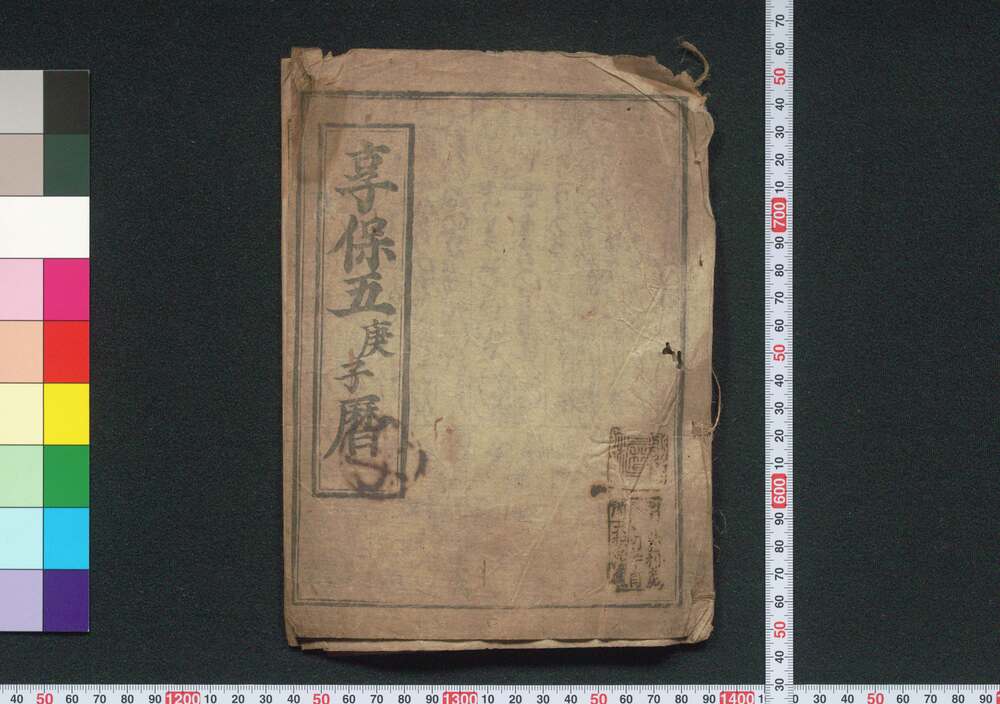 享保五庚子暦
70
60
50
40
30
20
10
700
90
80
70
60
50
40
30
20
10
600
90
80
70
60
50
40
30
40 50 60 70 80 90 1200 10 20 30 40 50 60 70 80 90 1300 10 20 30 40 50 60 70 80 90 1400 20 30 40 50 60 70 80 90